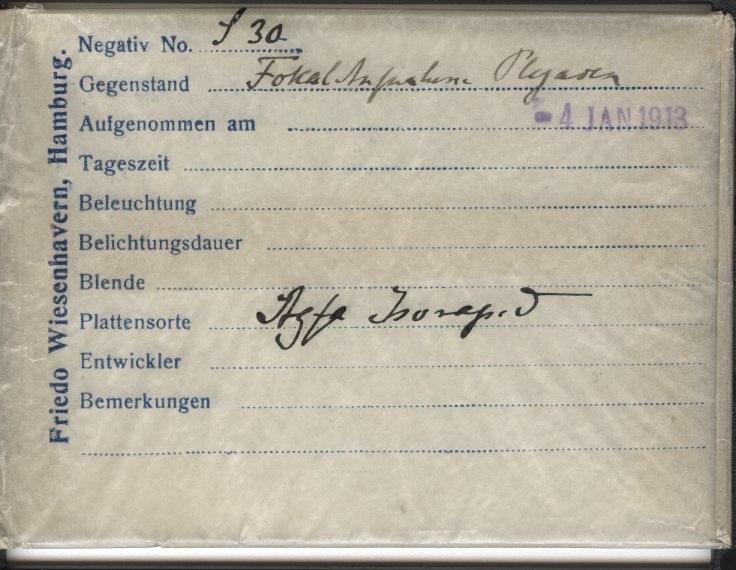 Friedo Wiesenhavern, Hamburg.
Negativ No. S 30
Gegenstand Fokal Aufnahme Plejaden
Aufgenommen am 4 JAN 1913
Tageszeit
Beleuchtung
Belichtungsdauer
Blende
Plattensorte Agfa Isorapid
Entwickler
Bemerkungen